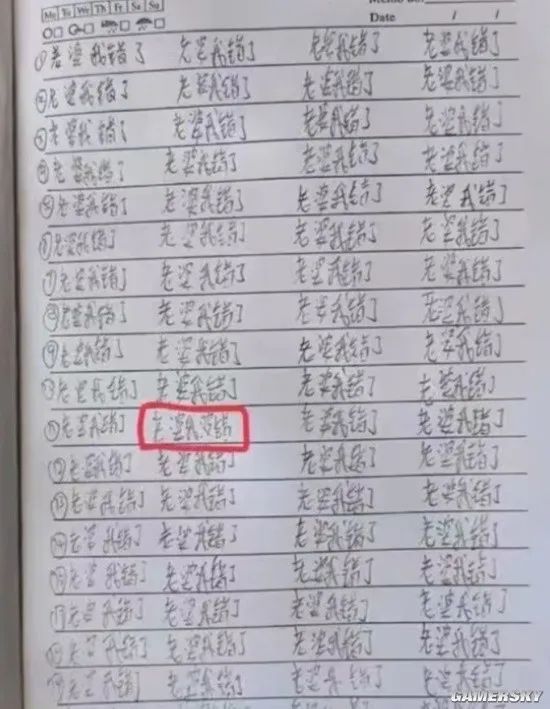 Mo Tu We Th Fr Sa Su
Date / /
① 老婆我错了 老婆我错了 老婆我错了 老婆我错了
② 老婆我错了 老婆我错了 老婆我错了 老婆我错了
③ 老婆我错了 老婆我错了 老婆我错了 老婆我错了
④ 老婆我错了 老婆我错了 老婆我错了 老婆我错了
⑤ 老婆我错了 老婆我错了 老婆我错了 老婆我错了
⑥ 老婆我错了 老婆我错了 老婆我错了 老婆我错了
⑦ 老婆我错了 老婆我错了 老婆我错了 老婆我错了
⑧ 老婆我错了 老婆我错了 老婆我错了 老婆我错了
⑨ 老婆我错了 老婆我错了 老婆我错了 老婆我错了
⑩ 老婆我错了 老婆我错了 老婆我错了 老婆我错了
⑪ 老婆我错了 老婆我没错 老婆我错了 老婆我错了
⑫ 老婆我错了 老婆我错了 老婆我错了 老婆我错了
⑬ 老婆我错了 老婆我错了 老婆我错了 老婆我错了
⑭ 老婆我错了 老婆我错了 老婆我错了 老婆我错了
老婆我错了 老婆我错了 老婆我错了 老婆我错了
老婆我错了 老婆我错了 老婆我错了 老婆我错了
老婆我错了 老婆我错了 老婆我错了 老婆我错了
老婆我错了 老婆我错了 老婆我错了 老婆我错了
GAMERSKY